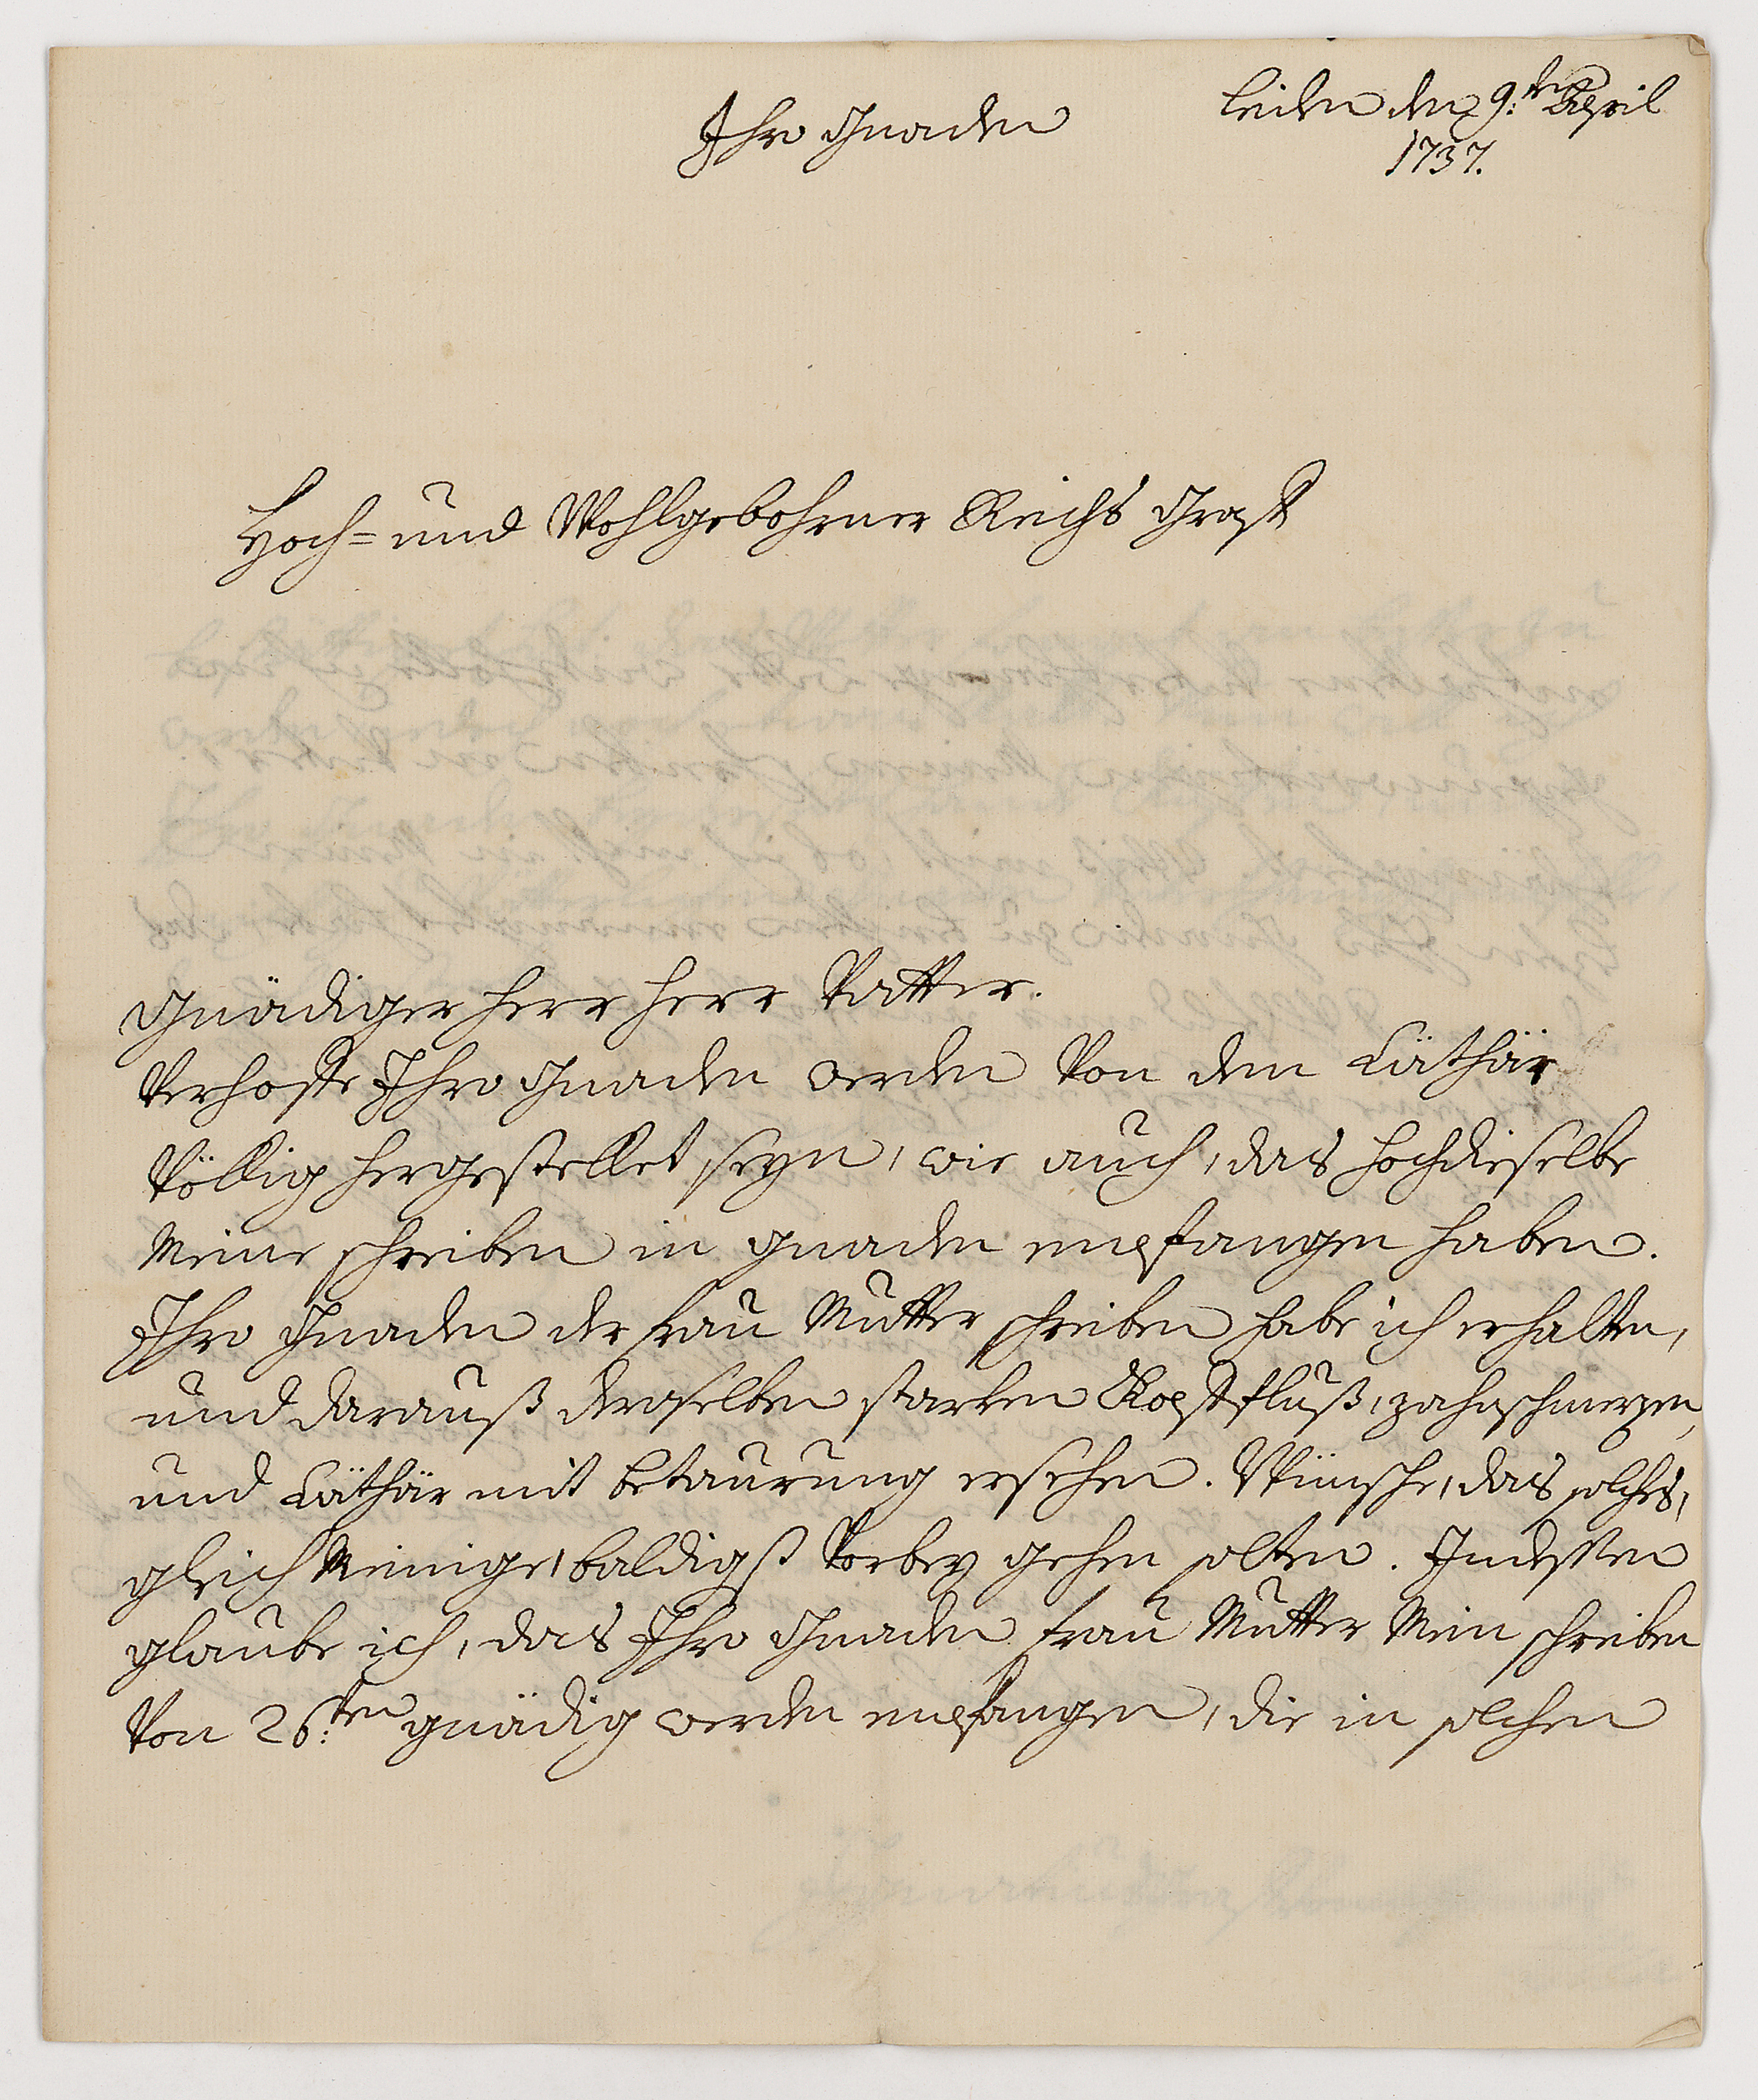 Leiden den 9:ten April
1737.
Ihro Gnaden
Hoch= und Wohlgebohrner Reichs Graff
Gnädiger Herr Herr Vatter.
Verhoffe Ihro Gnaden werden von dem Cäthär
völlig hergestellet seyn, wie auch, das hochdieselbe
Meine schreiben in gnaden empfangen haben.
Ihro Gnaden der frau Mutter schreiben habe ich erhalten,
und darauß deroselben starken Kopffluß, zahnschmerzen,
und Cäthär mit betaurung ersehen. Wünsche, das solches,
gleich Meinige, baldigst vorbey gehen solten. Indessen
glaube ich, das Ihro Gnaden frau Mutter Mein schreiben
von 26:ten gnädig werden empfangen, die in solchen